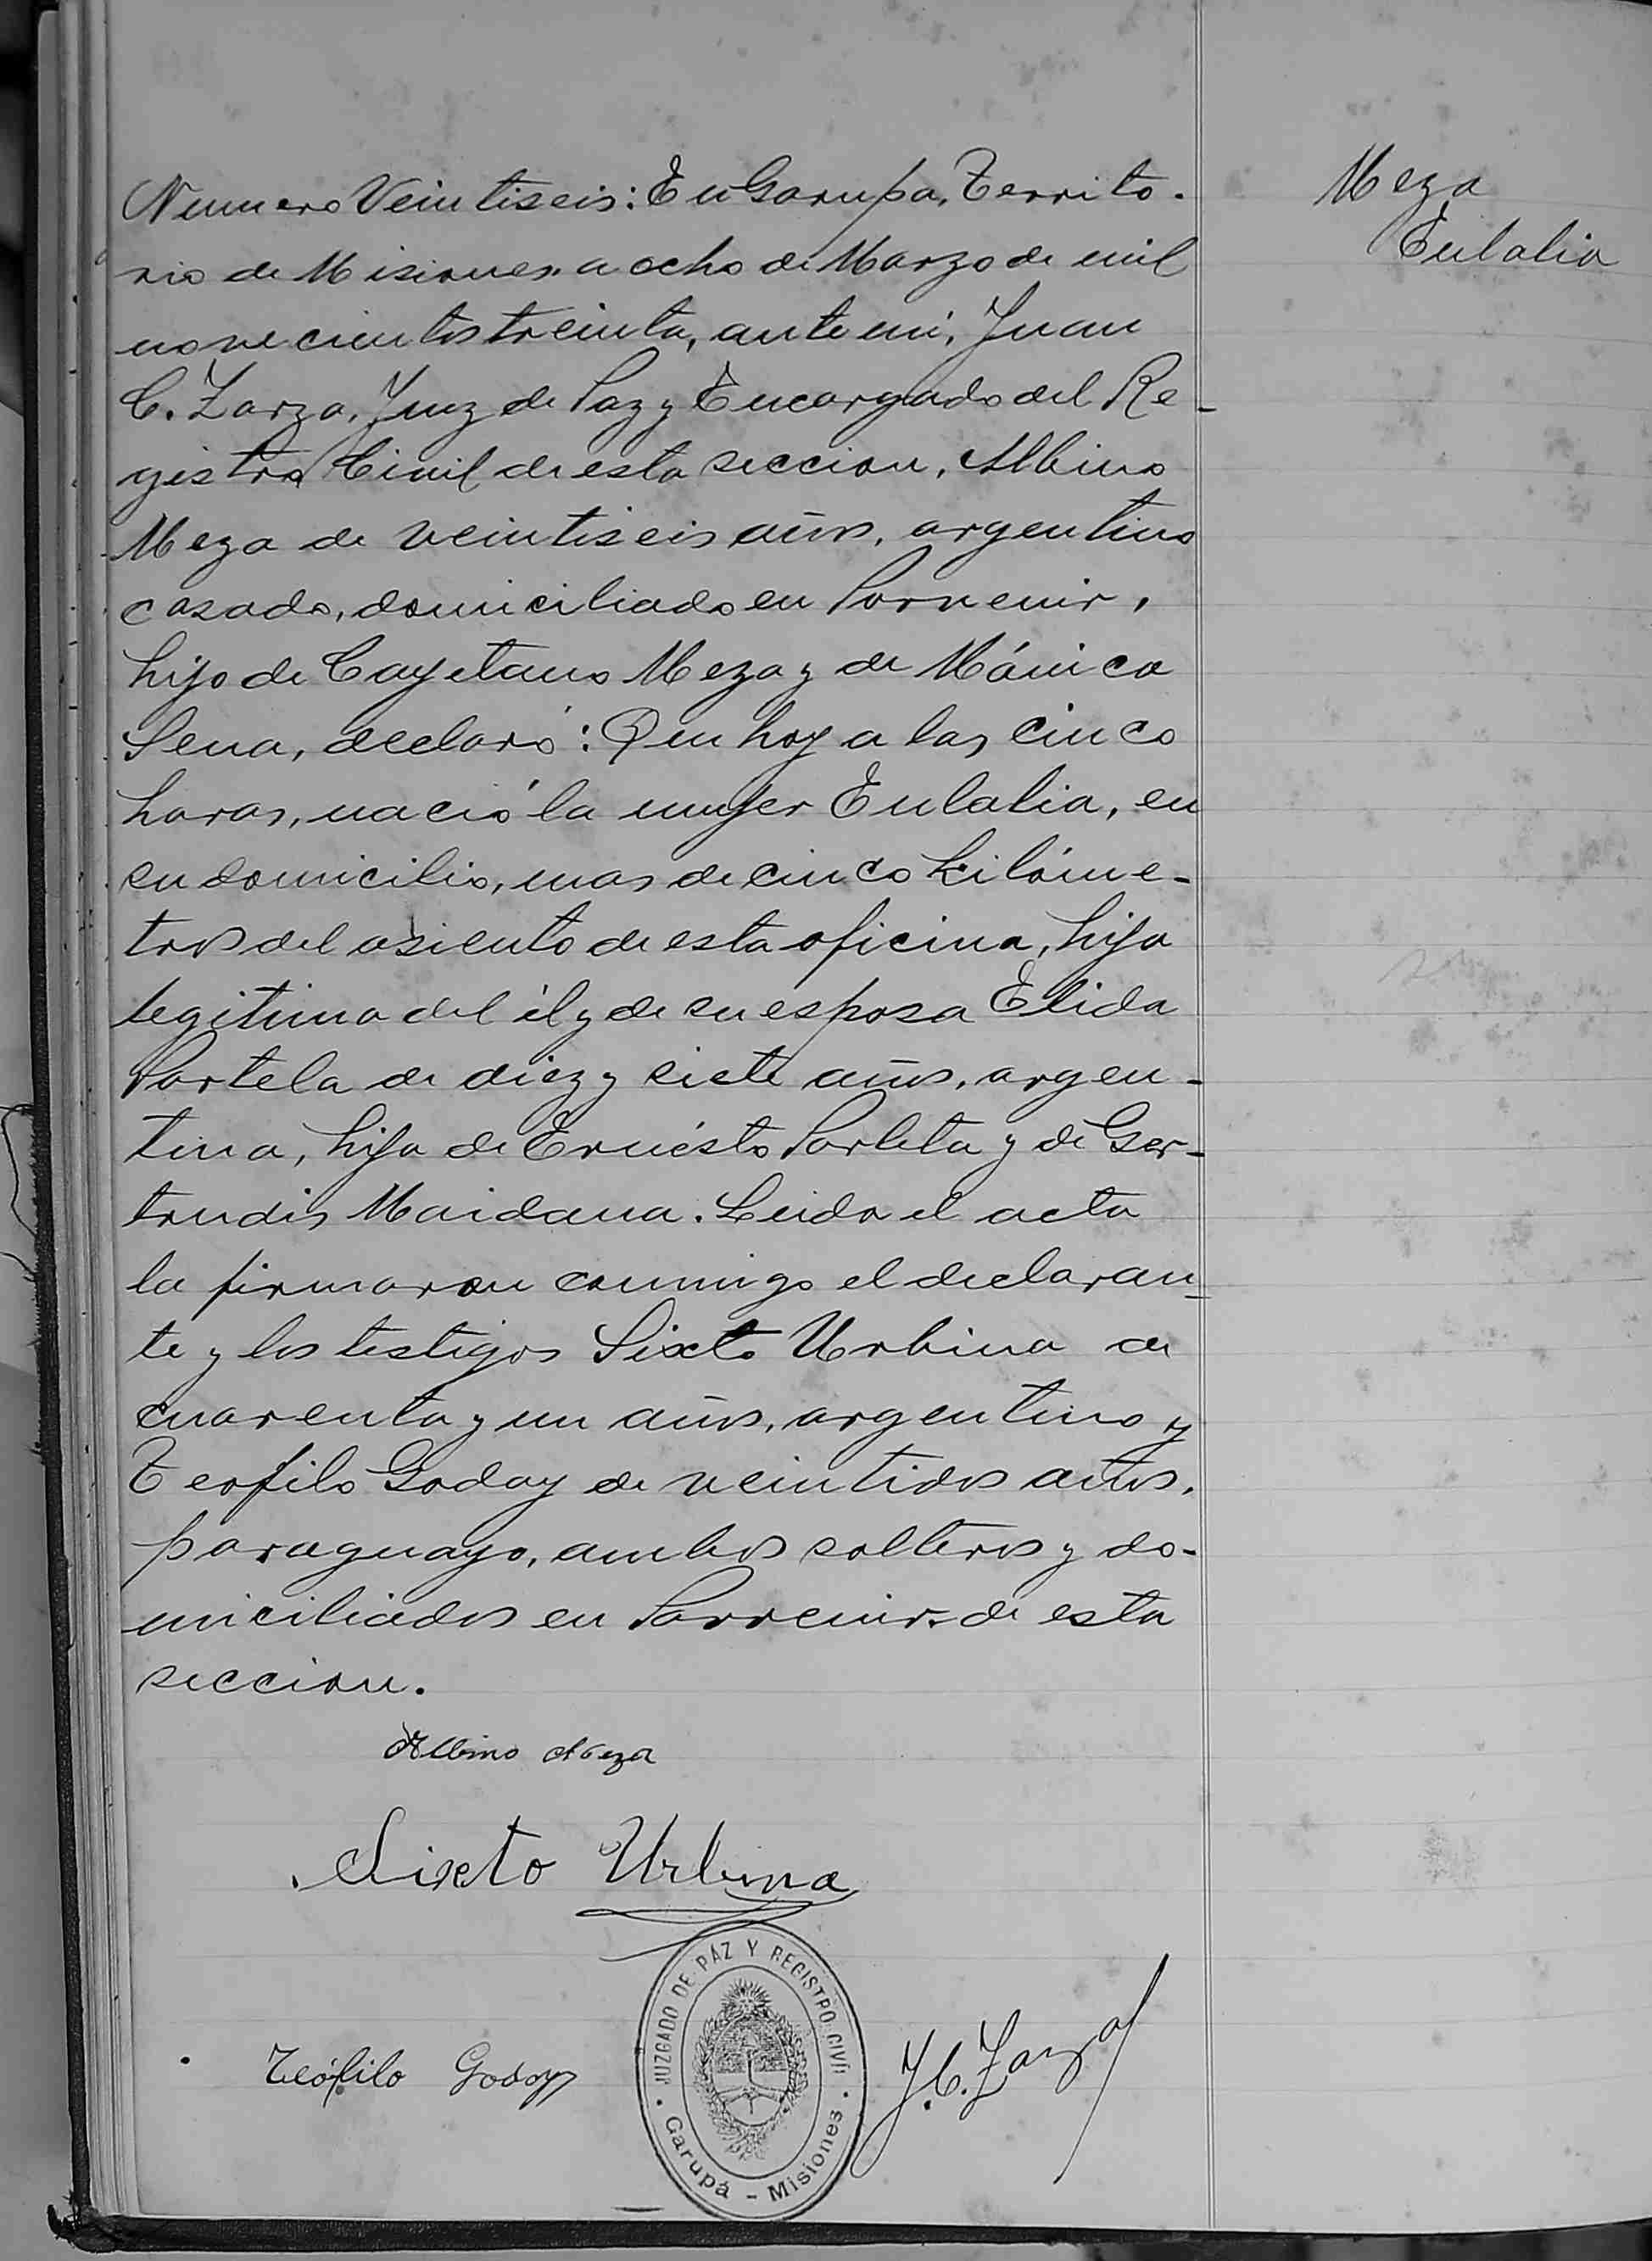 Numero Veintiseis: En Garupa, Territo-
rio de Misiones a ocho de Marzo de mil
novecientos treinta, ante mi, Juan
C. Zarza, Juez de Paz y Encargado del Re-
gistro Civil de esta seccion, Albino
Meza de veintiseis años, argentino
casado, domiciliado en Porvenir,
hijo de Cayetano Meza y de Mónica
Sena, declaró: Que hoy a las cinco
horas, nació la mujer Eulalia, en
su domicilio, mas de cinco kilóme-
tros del asiento de esta oficina, hija
legitima del él y de su esposa Elida
Portela de diez y siete años, argen-
tina, hija de Ernésto Porleta y de Ger-
trudis Maidana. Leida el acta
la firmaron conmigo el declaran-
te y los testigos Sixto Urbina de
cuarenta y un años, argentino y
Teofilo Goday de veintidos años,
paraguayo, ambos solteros y do-
miciliados en Porvenir de esta
seccion.
Meza
Eulalia
Albino Meza
Sixto Urbina
JUZGADO DE PAZ Y REGISTRO CIVIL
Garupá - Misiones
Teófilo Godoy
J.C. Zarza